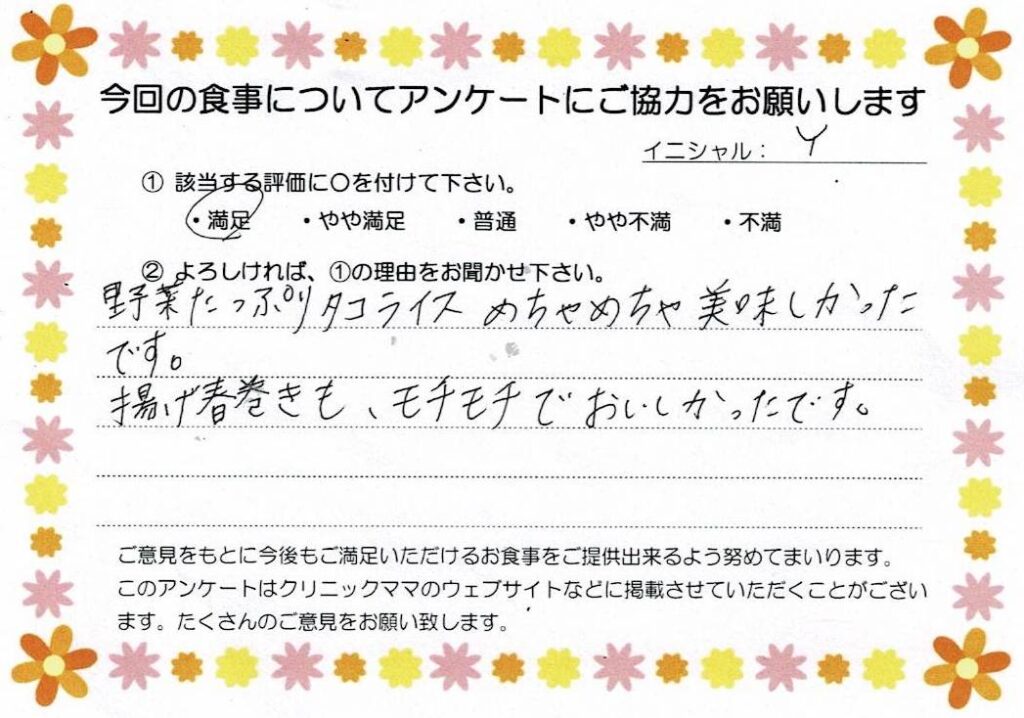 今回の食事についてアンケートにご協力をお願いします
イニシャル： Y
① 該当する評価に〇を付けて下さい。
・満足 ・やや満足 ・普通 ・やや不満 ・不満
② よろしければ、①の理由をお聞かせ下さい。
野菜たっぷりタコライス めちゃめちゃ美味しかった
です。
揚げ春巻きも、モチモチでおいしかったです。
ご意見をもとに今後もご満足いただけるお食事をご提供出来るよう努めてまいります。
このアンケートはクリニックママのウェブサイトなどに掲載させていただくことがござい
ます。たくさんのご意見をお願い致します。